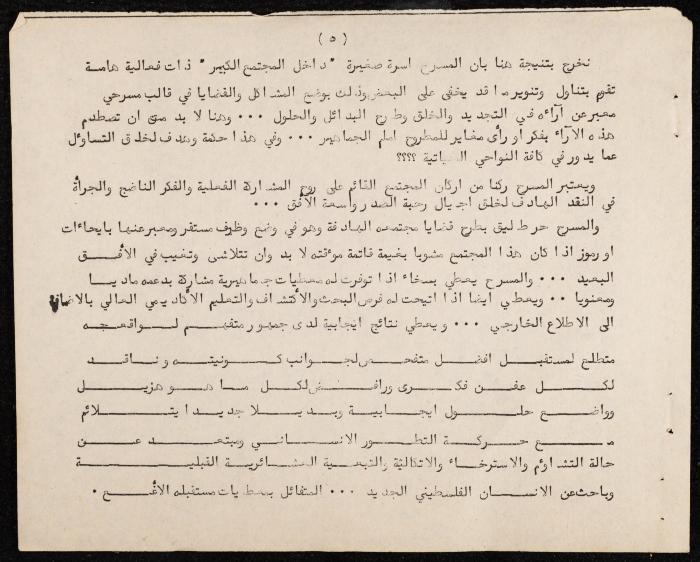 ( ٥ )
نخرج بنتيجة هنا بان المسرح اسرة صغيرة "داخل المجتمع الكبير" ذات فعالية هامة
تقوم بتناول وتنوير ما قد يخفى على البعض وذلك بوضع المشاكل والقضايا في قالب مسرحي
معبر عن آراءه في التجديد والخلق وطرح البدائل والحلول ... وهنا لا بد من ان تصطدم
هذه الآراء بفكر او رأى مغاير للمطروح امام الجماهير ... وفي هذا حكمة وهدف لخلق التساؤل
عما يدور في كافة النواحي الحياتية ؟؟؟؟
ويعتبر المسرح ركنا من اركان المجتمع القائم على روح المشاركة الفعلية والفكر الناضج والجرأة
في النقد الهادف لخلق اجيال رحبة الصدر واسعة الأفق ...
والمسرح حر طليق بطرح قضايا مجتمعه الهادفة وهو في وضع وظرف مستقر ومعبر عنها بايحاءات
او رموز اذا كان هذا المجتمع مشوبا بغيمة قاتمة موقتة لا بد وان تتلاشى وتغيب في الأفق
البعيد ... والمسرح يعطي بسخاء اذا توفرت له معطيات جماهيرية مشاركة بدعمه ماديا
ومعنويا .. ويعطي ايضا اذا اتيحت له فرص البحث والأكتشاف والتعليم الأكاديمي العالي بالاضافة
الى الاطلاع الخارجي ... ويعطي نتائج ايجابية لدى جمهور متفهم لواقعه
متطلع لمستقبل افضل متفحص لجوانب كونيته وناقد
لكل عفن فكرى ورافض لكل ما هو هزيل
وواضع حلول ايجابية وبديلا جديدا يتلائم
مع حركة التطور الانساني ومبتعد عن
حالة التشاؤم والاسترخاء والاتكالية والتبعية العشائرية القبلية
وباحث عن الانسان الفلسطيني الجديد ... المتفائل بمعطيات مستقبله الأ